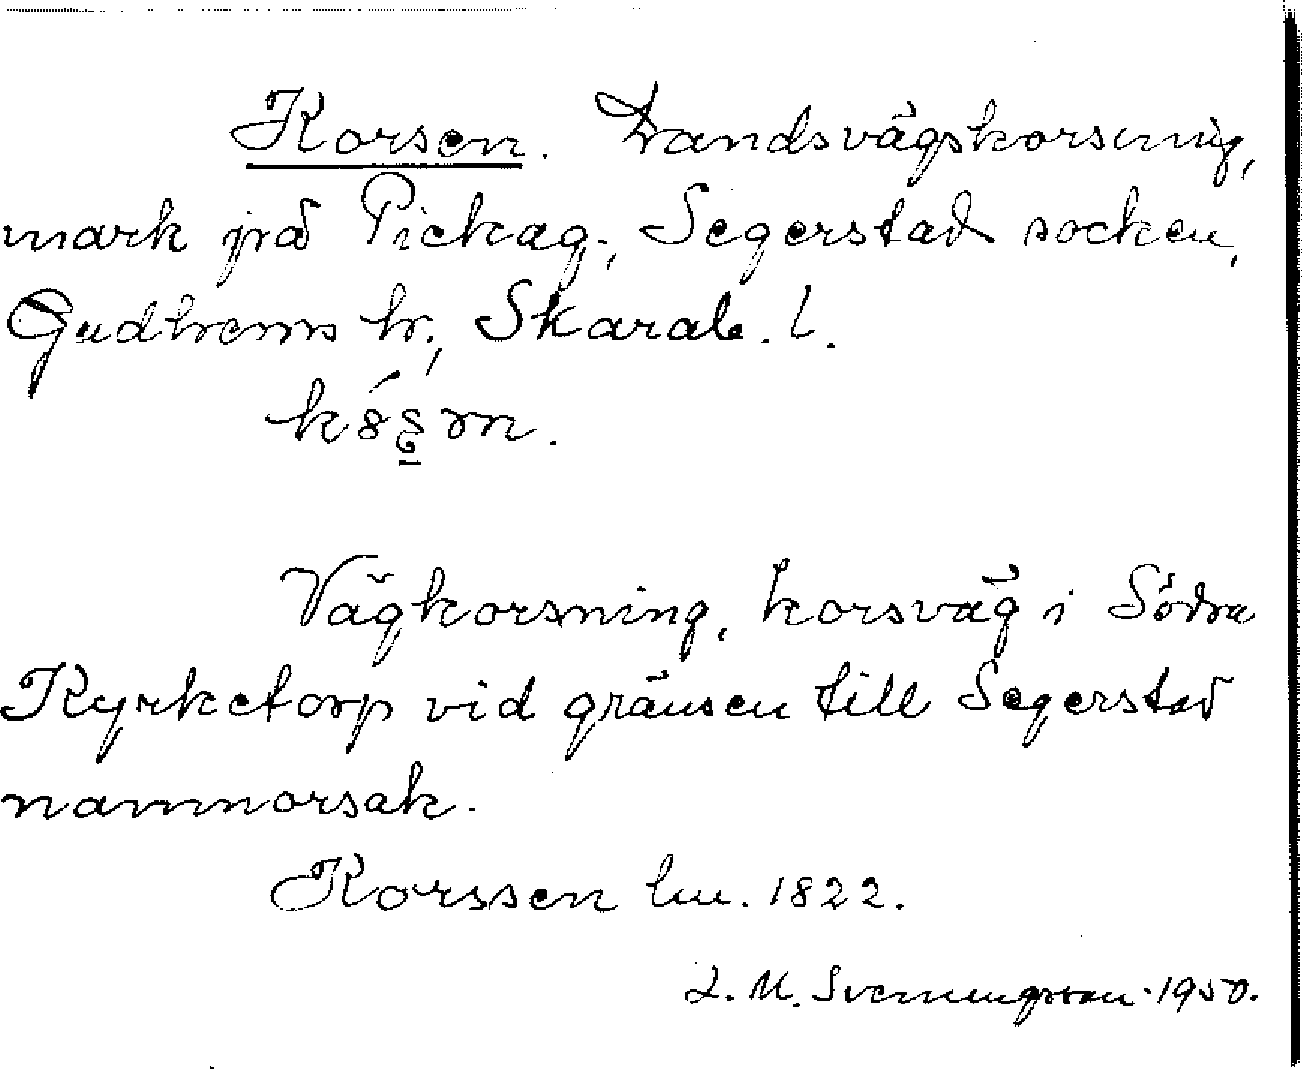 Korsen. Landsvägskorsning,
mark på Pickag., Segerstad socken,
Gudhems hr., Skarab. l.
Vägkorsning, korsväg i Södra
Kyrketorp vid gränsen till Segerstad
namnorsak.
Korssen lm. 1822.
L. M. Svenungsson 1950.